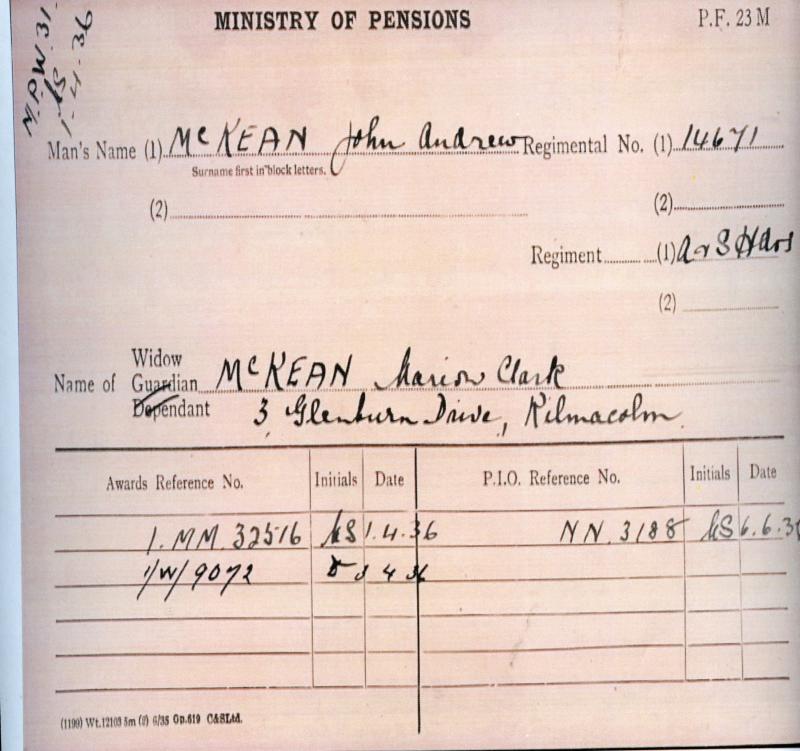 MINISTRY OF PENSIONS
P.F. 23 M
M.P.W. 31.
1.4.36
Man's Name (1) McKEAN John Andrew Regimental No. (1) 14671
Surname first in block letters.
(2) (2)
Regiment (1) A & S Hdrs
(2)
Widow
Name of Guardian McKEAN Marion Clark
Dependant 3 Glenburn Drive, Kilmacolm.
Awards Reference No. Initials Date P.I.O. Reference No. Initials Date
1.MM.32516 KS 1.4.36 NN.3188 KS 6.6.36
1/W/9072 3 4 36
(1199) Wt.12103 5m (2) 6/35 Gp.619 C&SLtd.